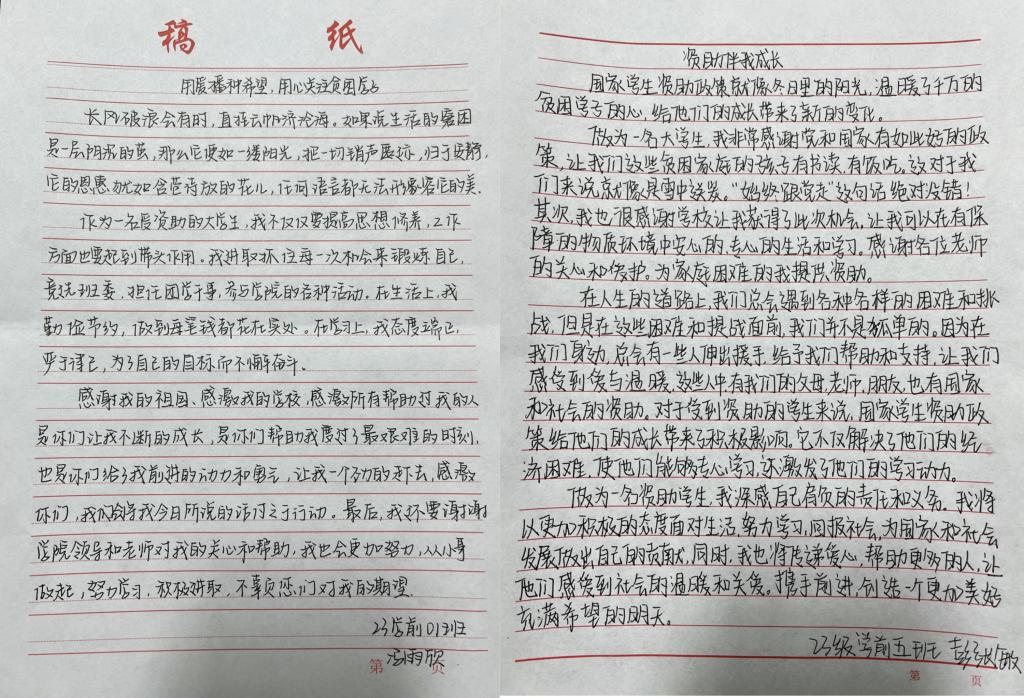 稿 纸
用暖播种希望,用心关注贫困学子
长风破浪会有时,直挂云帆济沧海。如果说生活的窘困
是一层阴沉的茧,那么它便如一缕阳光,把一切销声匿迹,归于安静,
它的恩惠就如含苞待放的花儿,任何语言都无法形象容它的美.
作为一名受资助的大学生,我不仅仅要提高思想修养,工作
方面也要起到带头作用。我进取抓住每一次机会来锻炼自己,
竞选班委,担任团学干事,参与学院的各种活动。在生活上,我
勤俭节约,做到每笔钱都花在实处。在学习上,我态度端正,
严于律己,为了自己的目标而不懈奋斗.
感谢我的祖国、感激我的学校,感激所有帮助过我的人
是你们让我不断的成长,是你们帮助我度过了最艰难的时刻,
也是你们给了我前进的动力和勇气,让我一个劲的走下去,感激
你们,我会将我今日所说的话付之于行动。最后,我还要谢谢
学院领导和老师对我的关心和帮助,我也会更加努力,从小事
做起,努力学习,积极进取,不辜负您们对我的期望.
23学前01班
冯雨欣
第 页
资助伴我成长
国家学生资助政策就像冬日里的阳光,温暖了千万的
贫困学子的心,给他们的成长带来了新的变化。
做为一名大学生,我非常感谢党和国家有如此好的政
策,让我们这些贫困家庭的孩子有书读,有饭吃。这对于我
们来说就像是雪中送炭。“始终跟党走”这句话绝对没错!
其次,我也很感谢学校让我获得了此次机会。让我可以在有保
障的物质环境中安心的、专心的生活和学习。感谢各位老师
的关心和爱护。为家庭困难的我提供资助。
在人生的道路上,我们总会遇到各种各样的困难和挑
战,但是在这些困难和挑战面前,我们并不是孤单的。因为在
我们身边,总会有一些人伸出援手,给予我们帮助和支持,让我们
感受到爱与温暖,这些人中有我们的父母,老师,朋友,也有国家
和社会的资助。对于受到资助的学生来说,国家学生资助政
策给他们的成长带来了积极影响。它不仅解决了他们的经
济困难,使他们能够专心学习,还激发了他们的学习动力。
做为一名资助学生,我深感自己肩负的责任和义务。我将
以更加积极的态度面对生活,努力学习,回报社会,为国家和社会
发展做出自己的贡献,同时,我也将传递爱心,帮助更多的人,让
他们感受到社会的温暖和关爱。携手前进,创造一个更加美好
充满希望的明天。
23级学前五班 彭
第 页